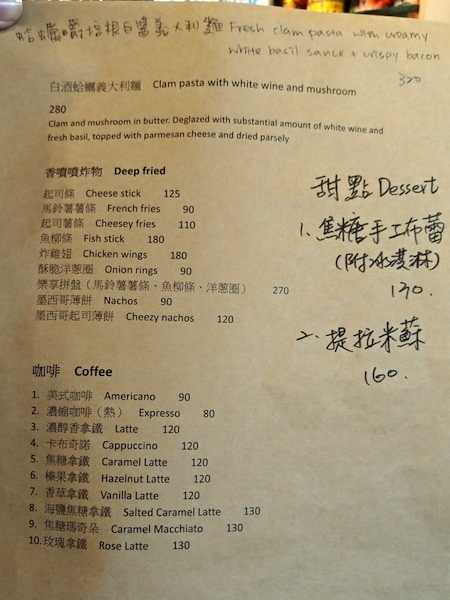 蛤蠣嚼培根白醬義大利麵 Fresh clam pasta with creamy
white basil sauce + crispy bacon
320
白酒蛤蠣義大利麵 Clam pasta with white wine and mushroom
280
Clam and mushroom in butter. Deglazed with substantial amount of white wine and
fresh basil, topped with parmesan cheese and dried parsely
香噴噴炸物 Deep fried
起司條 Cheese stick 125
馬鈴薯薯條 French fries 90
起司薯條 Cheesey fries 110
魚柳條 Fish stick 180
炸雞翅 Chicken wings 180
酥脆洋蔥圈 Onion rings 90
樂享拼盤（馬鈴薯薯條、魚柳條、洋蔥圈） 270
墨西哥薄餅 Nachos 90
墨西哥起司薄餅 Cheezy nachos 120
甜點 Dessert
1. 焦糖手工布蕾
(附冰淇淋)
170.
2. 提拉米蘇
160.
咖啡 Coffee
1. 美式咖啡 Americano 90
2. 濃縮咖啡（熱） Expresso 80
3. 濃醇香拿鐵 Latte 120
4. 卡布奇諾 Cappuccino 120
5. 焦糖拿鐵 Caramel Latte 120
6. 榛果拿鐵 Hazelnut Latte 120
7. 香草拿鐵 Vanilla Latte 120
8. 海鹽焦糖拿鐵 Salted Caramel Latte 130
9. 焦糖瑪奇朵 Caramel Macchiato 130
10. 玫瑰拿鐵 Rose Latte 130